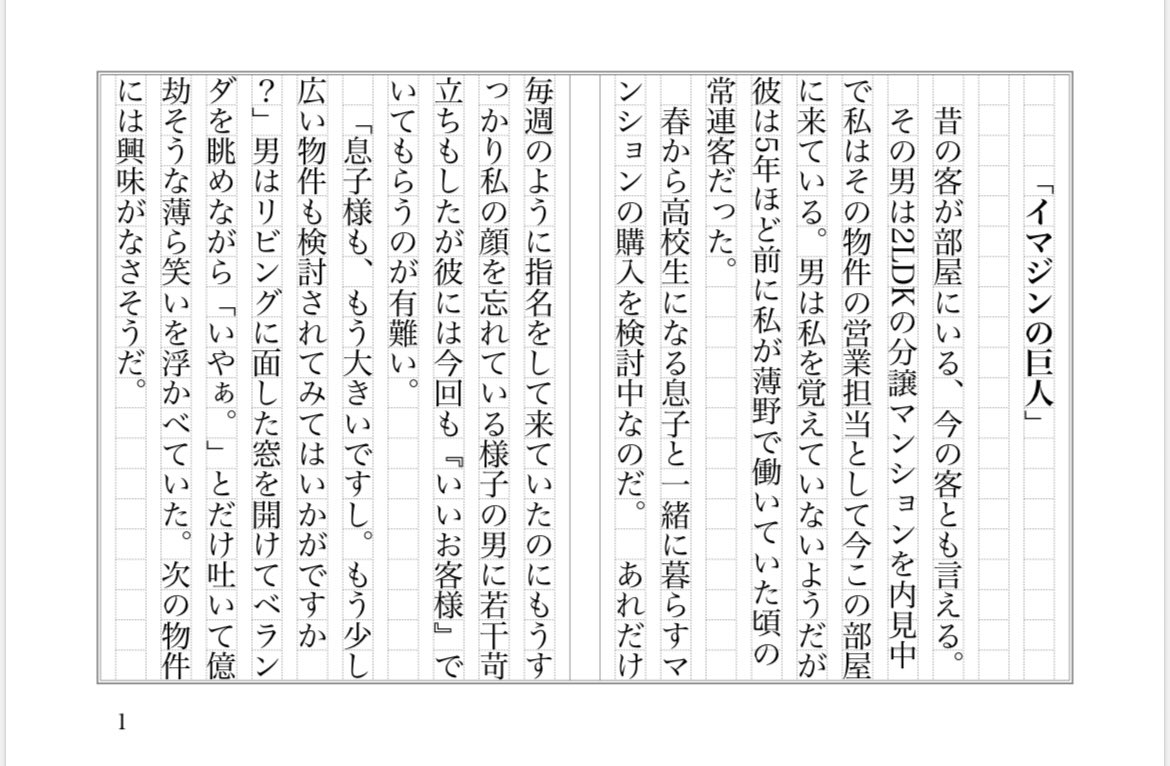 「イマジンの巨人」
昔の客が部屋にいる、今の客とも言える。
その男は2LDKの分譲マンションを内見中
で私はその物件の営業担当として今この部屋
に来ている。男は私を覚えていないようだが
彼は5年ほど前に私が薄野で働いていた頃の
常連客だった。
春から高校生になる息子と一緒に暮らすマ
ンションの購入を検討中なのだ。　あれだけ
毎週のように指名をして来ていたのにもうす
っかり私の顔を忘れている様子の男に若干苛
立ちもしたが彼には今回も『いいお客様』で
いてもらうのが有難い。
「息子様も、もう大きいですし。もう少し
広い物件も検討されてみてはいかがですか
？」男はリビングに面した窓を開けてベラン
ダを眺めながら「いやぁ。」とだけ吐いて億
劫そうな薄ら笑いを浮かべていた。次の物件
には興味がなさそうだ。
1